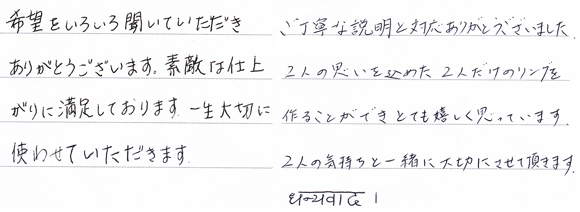 希望をいろいろ聞いていただき
ありがとうございます。素敵は仕上
がりに満足しております。一生大切に
使わせていただきます。
ご丁寧な説明と対応ありがとうございました。
2人の思いを込めた2人だけのリングを
作ることができとても嬉しく思っています。
2人の気持ちと一緒に大切にさせて頂きます。